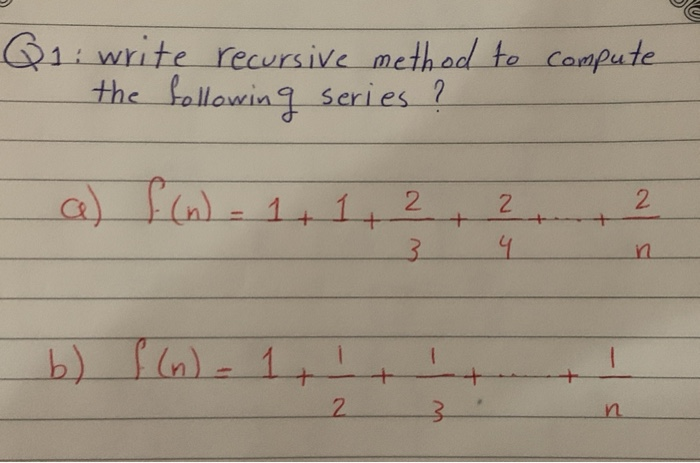 Q1: write recursive method to compute
the following series ?
a) f(n) = 1 + 1 + 2/3 + 2/4 + ..... + 2/n
b) f(n) = 1 + 1/2 + 1/3 + ...... + 1/n